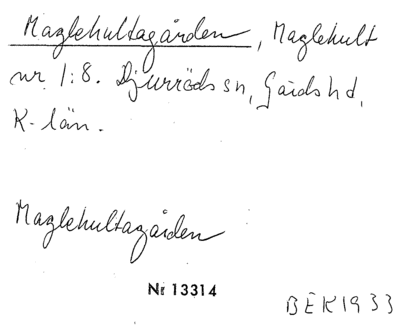 Maglehultagården, Maglehult
nr 1:8. Djurröds sn, Gärds hd,
K-län.
Maglehultagården
Nr 13314
BEK1933